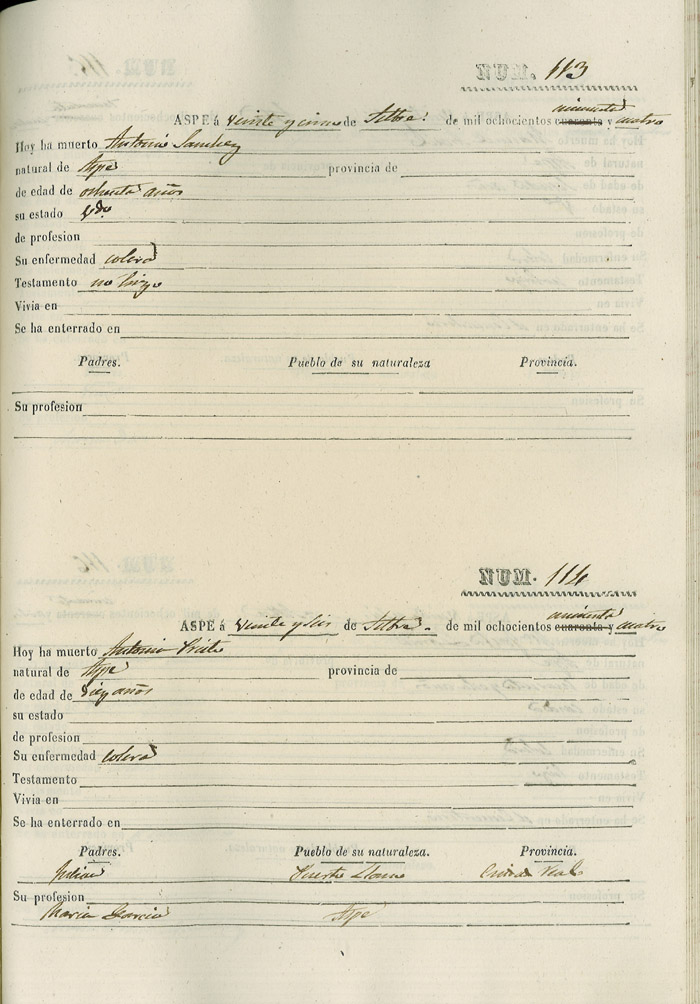 NUM. 113
cincuenta
ASPE á veinte y cinco de Stbre. de mil ochocientos cuarenta y cuatro
Hoy ha muerto Antonio Sanchez
natural de Aspe provincia de
de edad de ochenta años
su estado Vdo
de profesion
Su enfermedad colera
Testamento no hizo
Vivia en
Se ha enterrado en
Padres. Pueblo de su naturaleza Provincia.
Su profesion
NUM. 114
cincuenta
ASPE á veinte y seis de Stbre. de mil ochocientos cuarenta y cuatro
Hoy ha muerto Antonio
natural de Aspe provincia de
de edad de diez años
su estado
de profesion
Su enfermedad colera
Testamento
Vivia en
Se ha enterrado en
Padres. Pueblo de su naturaleza. Provincia.
Julian Puerto Llano Ciudad Real
Su profesion
Maria Garcia Aspe